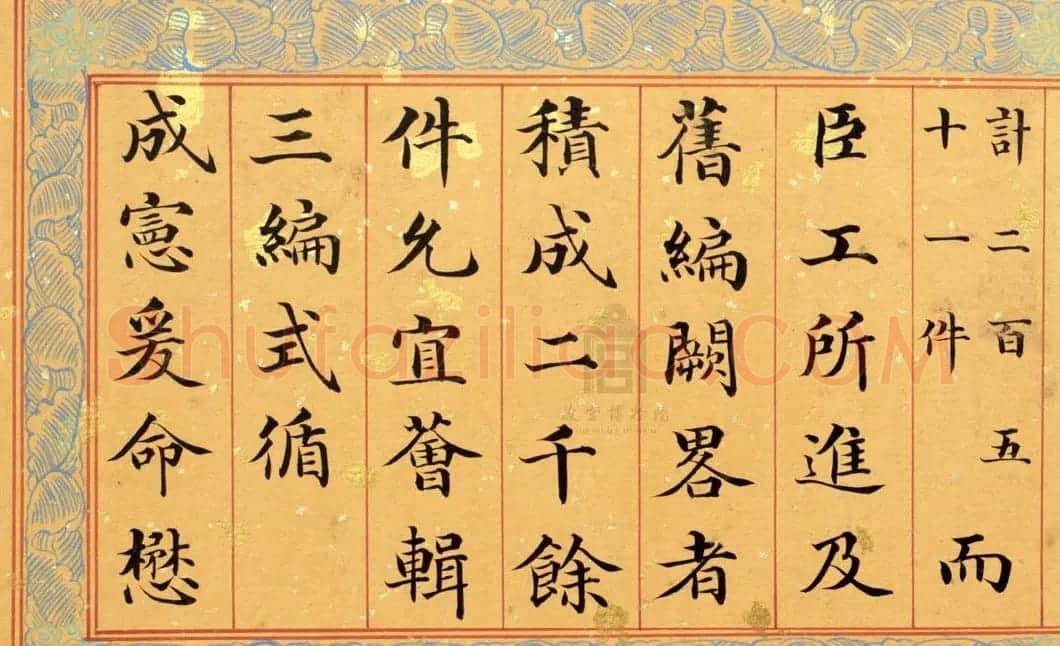 計二百五
十一件
而
臣工所進及
舊編闕畧者
積成二千餘
件允宜薈輯
三編式循
成憲爰命懋
Shufaziliao.COM
故宮博物院